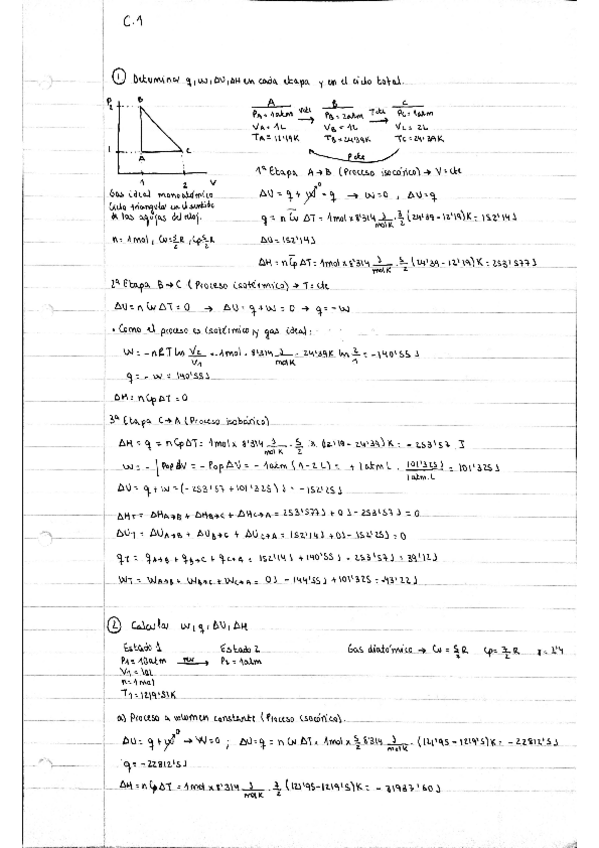 C.1
① Determinar q, w, ΔU, ΔH en cada etapa y en el ciclo total.
P
2
B
1
A
C
1 2 V
A
PA = 1atm
VA = 1L
TA = 12'19K
V cte
B
PB = 2atm
VB = 1L
TB = 24'39K
T cte
C
PC = 1atm
VC = 2L
TC = 24'39K
P cte
Gas ideal monoatómico
Ciclo triangular en el sentido
de las agujas del reloj.
n = 1mol, Cv = 3/2 R, Cp 5/2 R
1ª Etapa A → B (Proceso isocórico) → V = cte
ΔU = q + w⁰ = q → w = 0, ΔU = q
q = n Cv ΔT = 1mol x 8'314 J/molK · 3/2 (24'39 - 12'19)K = 152'14J
ΔU = 152'14J
ΔH = n Cp ΔT = 1mol x 8'314 J/molK · 5/2 (24'39 - 12'19)K = 253'577J
2ª Etapa B → C (Proceso isotérmico) → T = cte
ΔU = n Cv ΔT = 0 → ΔU = q + w = 0 → q = -w
· Como el proceso es isotérmico y gas ideal:
w = -nRT ln V2/V1 = -1mol · 8'314 J/molK · 24'39K ln 2/1 = -140'55J
q = -w = 140'55J
ΔH = n Cp ΔT = 0
3ª Etapa C → A (Proceso isobárico)
ΔH = q = n Cp ΔT = 1mol x 8'314 J/molK · 5/2 x (12'19 - 24'39)K = -253'57 J
w = -∫Pop dV = -Pop ΔV = -1atm (1-2L) = +1atm L · 101'325J/1atm.L = 101'325J
ΔU = q + w = (-253'57 + 101'325)J = -152'25J
ΔHT = ΔHA→B + ΔHB→C + ΔHC→A = 253'577J + 0J - 253'57J = 0
ΔUT = ΔUA→B + ΔUB→C + ΔUC→A = 152'14J + 0J - 152'25J = 0
qT = qA→B + qB→C + qC→A = 152'14J + 140'55J - 253'57J = 39'12J
WT = WA→B + WB→C + WC→A = 0J - 144'55J + 101'325 = -43'22J
② Calcular w, q, ΔU, ΔH
Estado 1
P1 = 10atm
V1 = 10L
n = 1mol
T1 = 1219'51K
rev
Estado 2
P2 = 1atm
Gas diatómico → Cv = 5/2 R Cp = 7/2 R γ = 1'4
a) Proceso a volumen constante (Proceso isocórico).
ΔU = q + w⁰ → W = 0 ; ΔU = q = n Cv ΔT = 1mol x 5/2 8'314 J/molK · (121'95 - 1219'5)K = -22812'5J
q = -22812'5J
ΔH = n Cp ΔT = 1mol x 8'314 J/molK · 7/2 (121'95 - 1219'5)K = -31937'60J